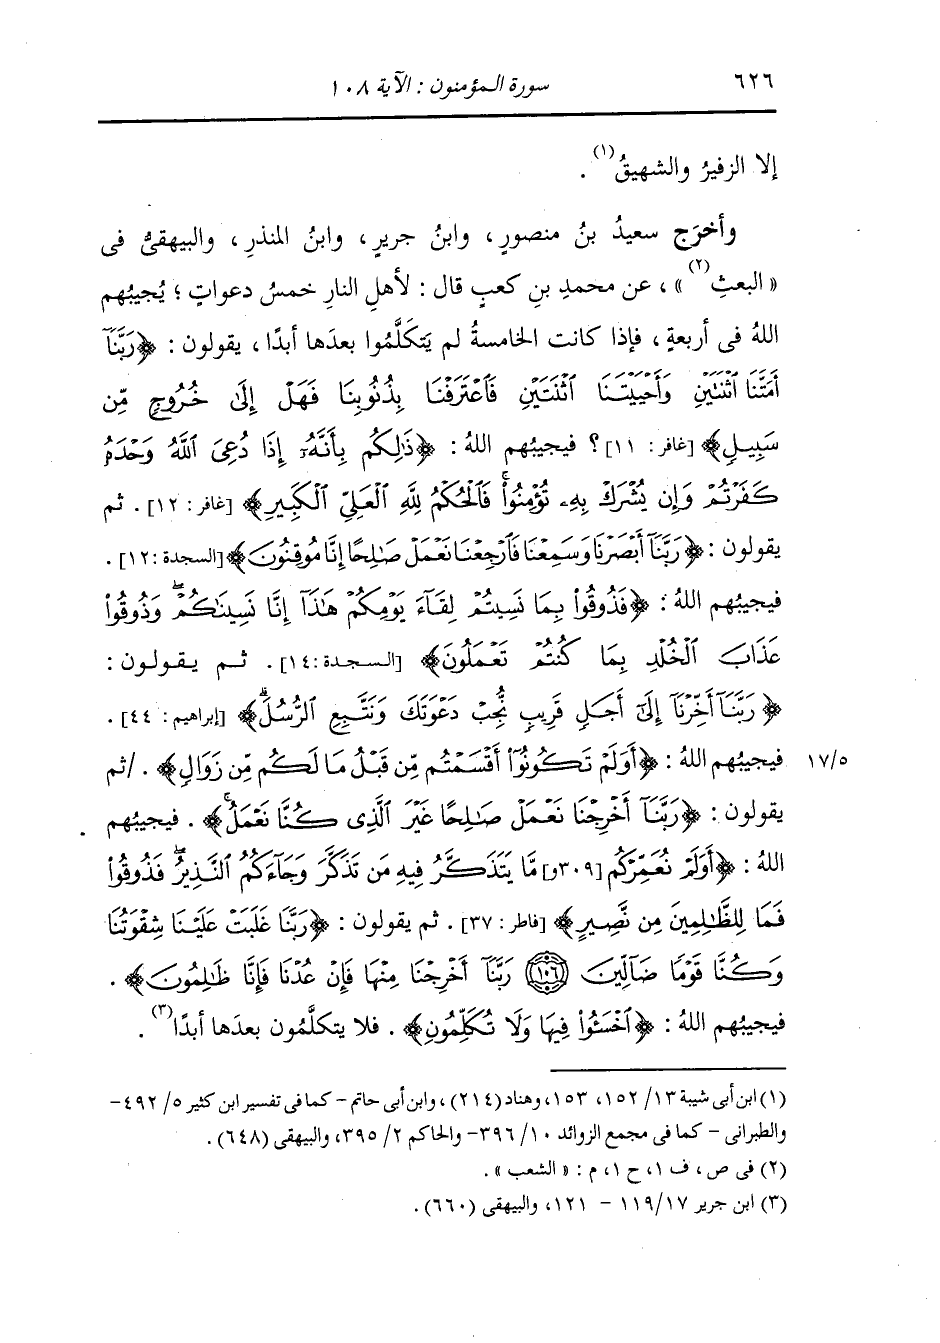 ٦٢٦
سورة المؤمنون : الآية ١٠٨
إلا الزفيرُ والشهيقُ(١) .
وأخرَج سعيدُ بنُ منصورٍ ، وابنُ جريرٍ ، وابنُ المنذرِ ، والبيهقىُّ فى
« البعثِ(٢) » ، عن محمدِ بنِ كعبٍ قال : لأهلِ النارِ خمسُ دعواتٍ ؛ يُجيبُهم
اللهُ فى أربعةٍ ، فإذا كانت الخامسةُ لم يَتكَلَّموا بعدَها أبدًا ، يقولون : ﴿رَبَّنَآ
أَمَتَّنَا ٱثْنَتَيْنِ وَأَحْيَيْتَنَا ٱثْنَتَيْنِ فَٱعْتَرَفْنَا بِذُنُوبِنَا فَهَلْ إِلَىٰ خُرُوجٍ مِّن
سَبِيلٍ﴾ [غافر: ١١] ؟ فيجيبُهم اللهُ : ﴿ذَٰلِكُم بِأَنَّهُۥٓ إِذَا دُعِىَ ٱللَّهُ وَحْدَهُۥ
كَفَرْتُمْ وَإِن يُشْرَكْ بِهِۦ تُؤْمِنُوا۟ۚ فَٱلْحُكْمُ لِلَّهِ ٱلْعَلِىِّ ٱلْكَبِيرِ﴾ [غافر: ١٢] . ثم
يقولون : ﴿رَبَّنَآ أَبْصَرْنَا وَسَمِعْنَا فَٱرْجِعْنَا نَعْمَلْ صَٰلِحًا إِنَّا مُوقِنُونَ﴾ [السجدة : ١٢] .
فيجيبُهم اللهُ : ﴿فَذُوقُوا۟ بِمَا نَسِيتُمْ لِقَآءَ يَوْمِكُمْ هَٰذَآ إِنَّا نَسِينَٰكُمْۖ وَذُوقُوا۟
عَذَابَ ٱلْخُلْدِ بِمَا كُنتُمْ تَعْمَلُونَ﴾ [السجدة : ١٤] . ثم يقولون :
﴿رَبَّنَآ أَخِّرْنَآ إِلَىٰٓ أَجَلٍ قَرِيبٍ نُّجِبْ دَعْوَتَكَ وَنَتَّبِعِ ٱلرُّسُلَۗ﴾ [إبراهيم : ٤٤] .
فيجيبُهم اللهُ : ﴿أَوَلَمْ تَكُونُوٓا۟ أَقْسَمْتُم مِّن قَبْلُ مَا لَكُم مِّن زَوَالٍ﴾ . /ثم ١٧/٥
يقولون : ﴿رَبَّنَآ أَخْرِجْنَا نَعْمَلْ صَٰلِحًا غَيْرَ ٱلَّذِى كُنَّا نَعْمَلُۚ﴾ . فيجيبُهم
اللهُ : ﴿أَوَلَمْ نُعَمِّرْكُم [٣٠٩و] مَّا يَتَذَكَّرُ فِيهِ مَن تَذَكَّرَ وَجَآءَكُمُ ٱلنَّذِيرُۖ فَذُوقُوا۟
فَمَا لِلظَّٰلِمِينَ مِن نَّصِيرٍ﴾ [فاطر : ٣٧] . ثم يقولون : ﴿رَبَّنَا غَلَبَتْ عَلَيْنَا شِقْوَتُنَا
وَكُنَّا قَوْمًا ضَآلِّينَ ١٠٦ رَبَّنَآ أَخْرِجْنَا مِنْهَا فَإِنْ عُدْنَا فَإِنَّا ظَٰلِمُونَ﴾ .
فيجيبُهم اللهُ : ﴿ٱخْسَـُٔوا۟ فِيهَا وَلَا تُكَلِّمُونِ﴾ . فلا يتكلَّمُون بعدَها أبدًا(٣) .
(١) ابن أبى شيبة ١٣/ ١٥٢، ١٥٣، وهناد (٢١٤) ، وابن أبى حاتم - كما فى تفسير ابن كثير ٥/ ٤٩٢-
والطبرانى - كما فى مجمع الزوائد ١٠/ ٣٩٦- والحاكم ٢/ ٣٩٥، والبيهقى (٦٤٨) .
(٢) فى ص ، ف ١، ح ١، م : « الشعب » .
(٣) ابن جرير ١١٩/١٧ - ١٢١، والبيهقى (٦٦٠) .